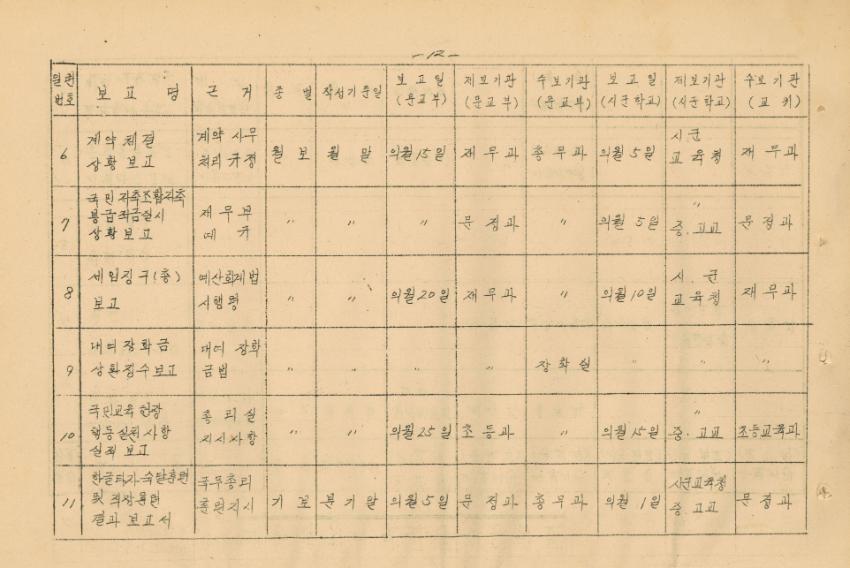 -12-
일련 번호 | 보고명 | 근거 | 종별 | 작성기준일 | 보고일 (문교부) | 제보기관 (문교부) | 수보기관 (문교부) | 보고일 (시군학교) | 제보기관 (시군학교) | 수보기관 (교위)
6 | 계약 체결 상황 보고 | 계약 사무 처리 규정 | 월보 | 월말 | 의월 15일 | 재무과 | 총무과 | 의월 5일 | 시군 교육청 | 재무과
7 | 국민저축조합저축 상황 보고 | 재무부 예규 | 〃 | 〃 | 〃 | 문정과 | 〃 | 의월 5일 | 〃 중.고교 | 문정과
8 | 세입징구(총) 보고 | 예산회계법 시행령 | 〃 | 〃 | 의월 20일 | 재무과 | 〃 | 의월 10일 | 시군 교육청 | 재무과
9 | 대여 장학금 상환징수보고 | 대여 장학금법 | 〃 | 〃 | 〃 | 〃 | 장학실 | 〃 | 〃 | 〃
10 | 국민교육헌장 행동실천사항 실적 보고 | 총리실 지시사항 | 〃 | 〃 | 의월 25일 | 초등과 | 〃 | 의월 15일 | 〃 중.고교 | 초등교육과
11 | 한글타자 숙달훈련 및 직장훈련 결과 보고서 | 국무총리 훈령지시 | 기보 | 분기말 | 의월 5일 | 문정과 | 총무과 | 의월 1일 | 시군교육청 중고교 | 문정과